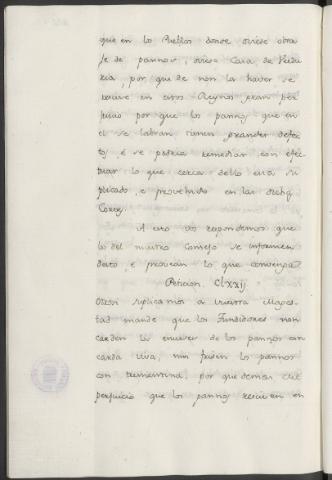 que en los Pueblos donde oviere obra
je de pannos, oviese Casa de Veedu
ria, por que de non la haver se
recive en estos Reynos gran per
juicio por que los pannos que en
el se labran tienen grandes defec
tos, é se podria remediar con efec
tuar lo que cerca dello está su
plicado, e provehido en las dichas
Cortes.
A esto vos respondemos que
los del nuestro Consejo se informen
desto, e provean lo que convenga.
Peticion. CLxxij
Otrosi suplicamos a vuestra Mages-
tad mande que los Tundidores non
carden los enveses de los pannos con
carda viva, nin frisen los pannos
con trementina, por que demas del
perjuicio que los pannos reciven en